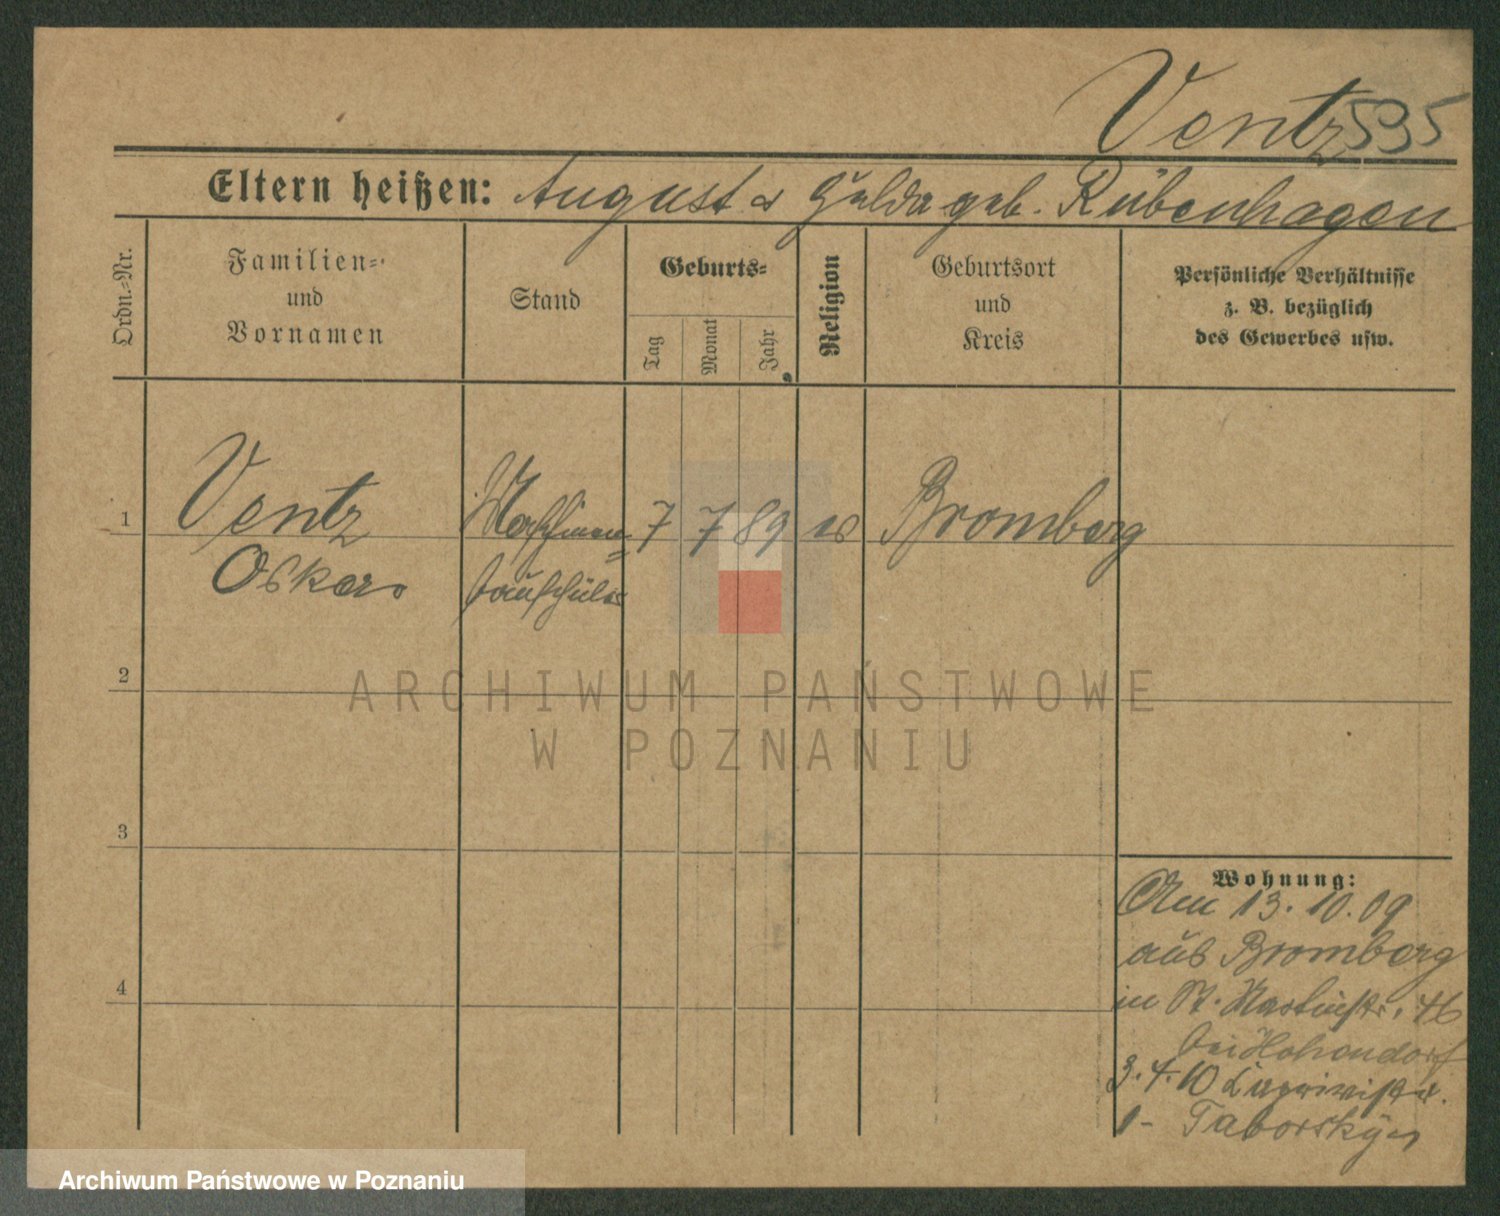 Ventz 535
Eltern heißen: August u Hulda geb. Rübenhagen
Ordn.=Nr.
Familien=
und
Vornamen
Stand
Geburts=
Tag
Monat
Jahr
Religion
Geburtsort
und
Kreis
Persönliche Verhältnisse
z. B. bezüglich
des Gewerbes usw.
1
Ventz
Oskar
Maschinen=
bauschüler
7 7 89 ev Bromberg
2
3
4
Wohnung:
Am 13. 10. 09
aus Bromberg
in St. Martinstr. 46
bei Hohendorf
3. 4. 10
Taborsky
ARCHIWUM PAŃSTWOWE
W POZNANIU
Archiwum Państwowe w Poznaniu